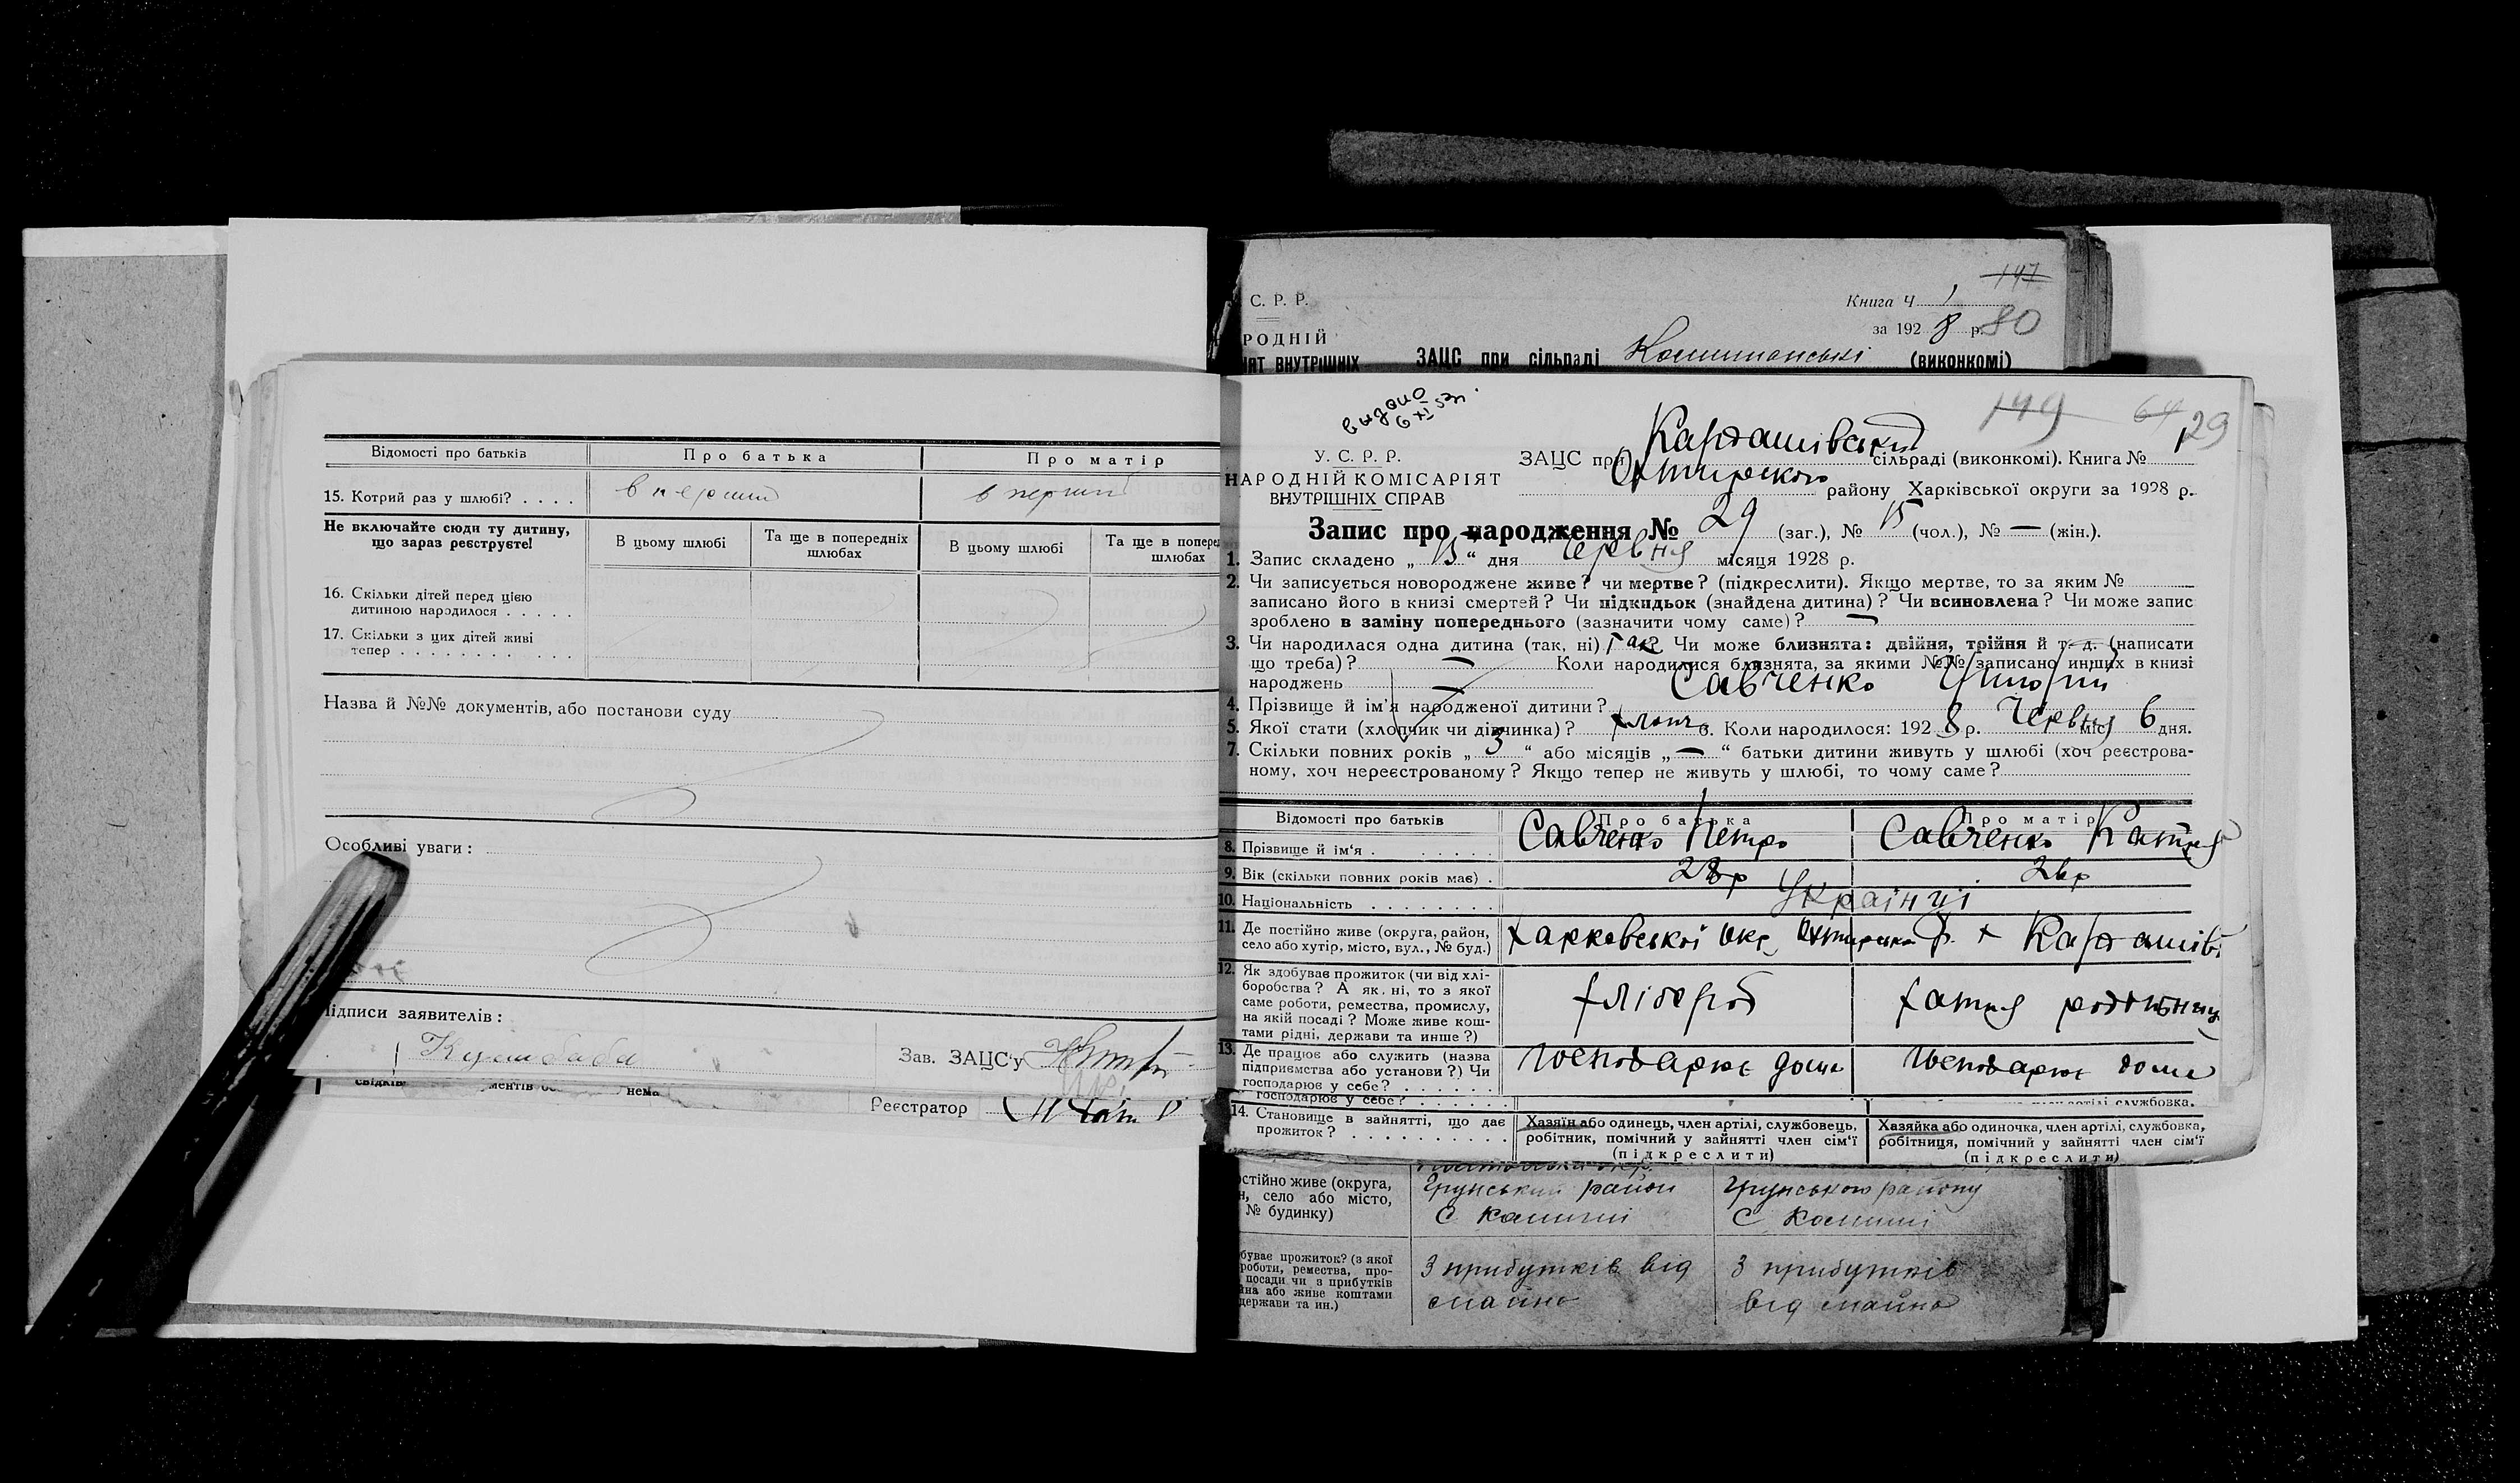 Відомості про батьків Про батька Про матір
15. Котрий раз у шлюбі? . . . . вперший вперший
Не включайте сюди ту дитину,
що зараз реєструєте!
В цьому шлюбі Та ще в попередніх шлюбах В цьому шлюбі Та ще в попере шлюбах
16. Скільки дітей перед цією
дитиною народилося . . . . .
17. Скільки з цих дітей живі
тепер . . . . . . . . . . .
Назва й №№ документів, або постанови суду
Особливі уваги:
ідписи заявителів:
Зав. ЗАЦС'у
свідків ментів нема
Реєстратор
147
С. Р. Р. Книга Ч 1
за 1928 р. 80
РОДНІЙ
ЯТ ВНУТРІШНІХ ЗАЦС при сільраді (виконкомі)
видано
6 XI 53г.
149 64 29
У. С. Р. Р.
НАРОДНІЙ КОМІСАРІЯТ
ВНУТРІШНІХ СПРАВ
ЗАЦС при Карташівській сільраді (виконкомі). Книга № 1
Охтирського району Харківської округи за 1928 р.
Запис про народження № 29 (заг.), № 15 (чол.), № — (жін.).
1. Запис складено „15“ дня Червня місяця 1928 р.
2. Чи записується новороджене живе? чи мертве? (підкреслити). Якщо мертве, то за яким №
записано його в книзі смертей? Чи підкидьок (знайдена дитина)? Чи всиновлена? Чи може запис
зроблено в заміну попереднього (зазначити чому саме)? —
3. Чи народилася одна дитина (так, ні) так? Чи може близнята: двійня, трійня й т. д. (написати
що треба)? — Коли народилися близнята, за якими №№ записано инших в книзі
народжень —
4. Прізвище й ім'я народженої дитини? Савченко
5. Якої стати (хлопчик чи дівчинка)? хлопч 6. Коли народилося: 1928 р. Червня міс. 6 дня.
7. Скільки повних років „3“ або місяців „—“ батьки дитини живуть у шлюбі (хоч реєстрова-
ному, хоч нереєстрованому? Якщо тепер не живуть у шлюбі, то чому саме?
Відомості про батьків Про батька Про матір
8. Прізвище й ім'я . . . . . . Савченко Петро Савченко
9. Вік (скільки повних років має) . 28р 26р
10. Національність . . . . . . . . Українці
11. Де постійно живе (округа, район,
село або хутір, місто, вул., № буд.)
Харковської окр Охтирськ р. х Карташів
12. Як здобуває прожиток (чи від хлі-
боробства? А як. ні, то з якої
саме роботи, ремества, промислу,
на якій посаді? Може живе кош-
тами рідні, держави та инше?)
хлібороб хатня робітниця
13. Де працює або служить (назва
підприємства або установи?) Чи
господарює у себе? . . . . . .
господарює дома господарює дома
господарює у себе? . . . . . . артілі службовка.
14. Становище в зайнятті, що дає
прожиток? . . . . . . . . . . .
Хазяїн або одинець, член артілі, службовець,
робітник, помічний у зайнятті член сім'ї
(підкреслити)
Хазяйка або одиночка, член артілі, службовка,
робітниця, помічний у зайнятті член сім'ї
(підкреслити)
остійно живе (округа,
н, село або місто,
№ будинку)
Грунський район
Грунського району
буває прожиток? (з якої
роботи, ремества, про-
посади чи з прибутків
йна або живе коштами
держави та ин.)
З прибутків від
майна
З прибутків
від майна